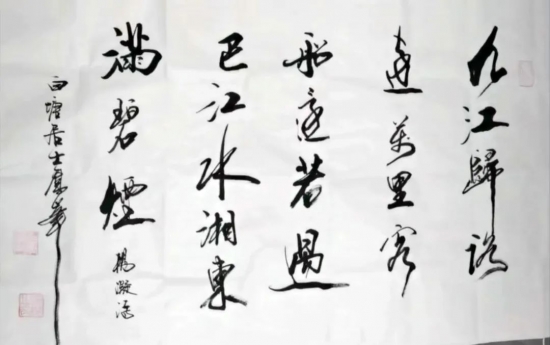 九江歸路
遠萬里客
船還若過
巴江水湘東
滿碧煙
楊凝詩
西塘居士廉華